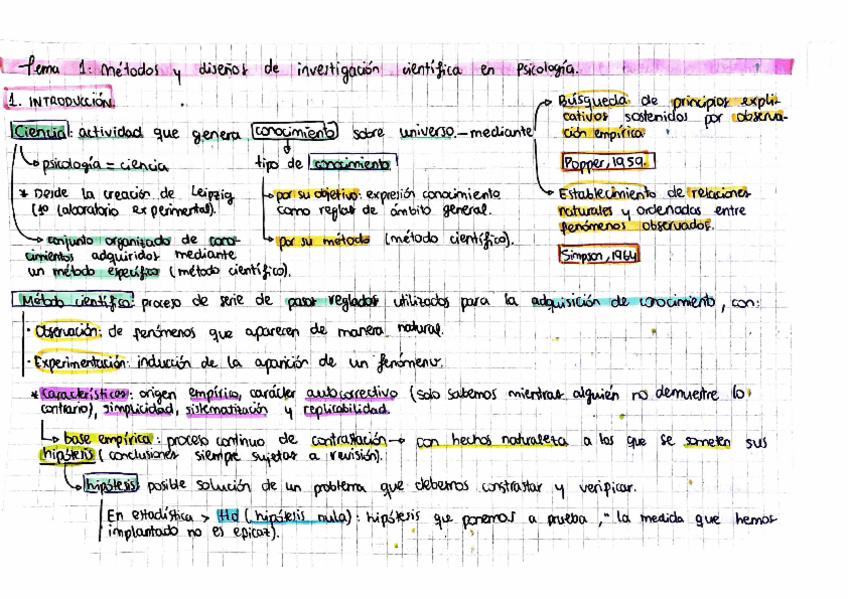 Tema 1: Métodos y diseños de investigación científica en Psicología.
1. INTRODUCCIÓN.
Ciencia: actividad que genera conocimiento sobre universo. – mediante
Búsqueda de principios expli-
cativos sostenidos por observa-
ción empírica
Popper, 1959.
Establecimiento de relaciones
naturales y ordenadas entre
fenómenos observados.
Simpson, 1964
psicología = ciencia
* Desde la creación de Leipzig
(1º laboratorio experimental).
conjunto organizado de cono-
cimientos adquiridos mediante
un método específico (método científico).
tipo de conocimiento
por su objetivo: expresión conocimiento
como reglas de ámbito general.
por su método (método científico).
Método científico: proceso de serie de pasos reglados utilizados para la adquisición de conocimiento, con:
· Observación: de fenómenos que aparecen de manera natural.
· Experimentación: inducción de la aparición de un fenómeno.
* Características: origen empírico, carácter autocorrectivo (solo sabemos mientras alguien no demuestre lo
contrario), simplicidad, sistematización y replicabilidad.
base empírica: proceso continuo de contrastación → con hechos naturaleza a los que se someten sus
hipótesis (conclusiones siempre sujetas a revisión).
hipótesis posible solución de un problema que debemos constrastar y verificar.
En estadística > Hd (hipótesis nula): hipótesis que ponemos a prueba, " la medida que hemos
implantado no es eficaz).